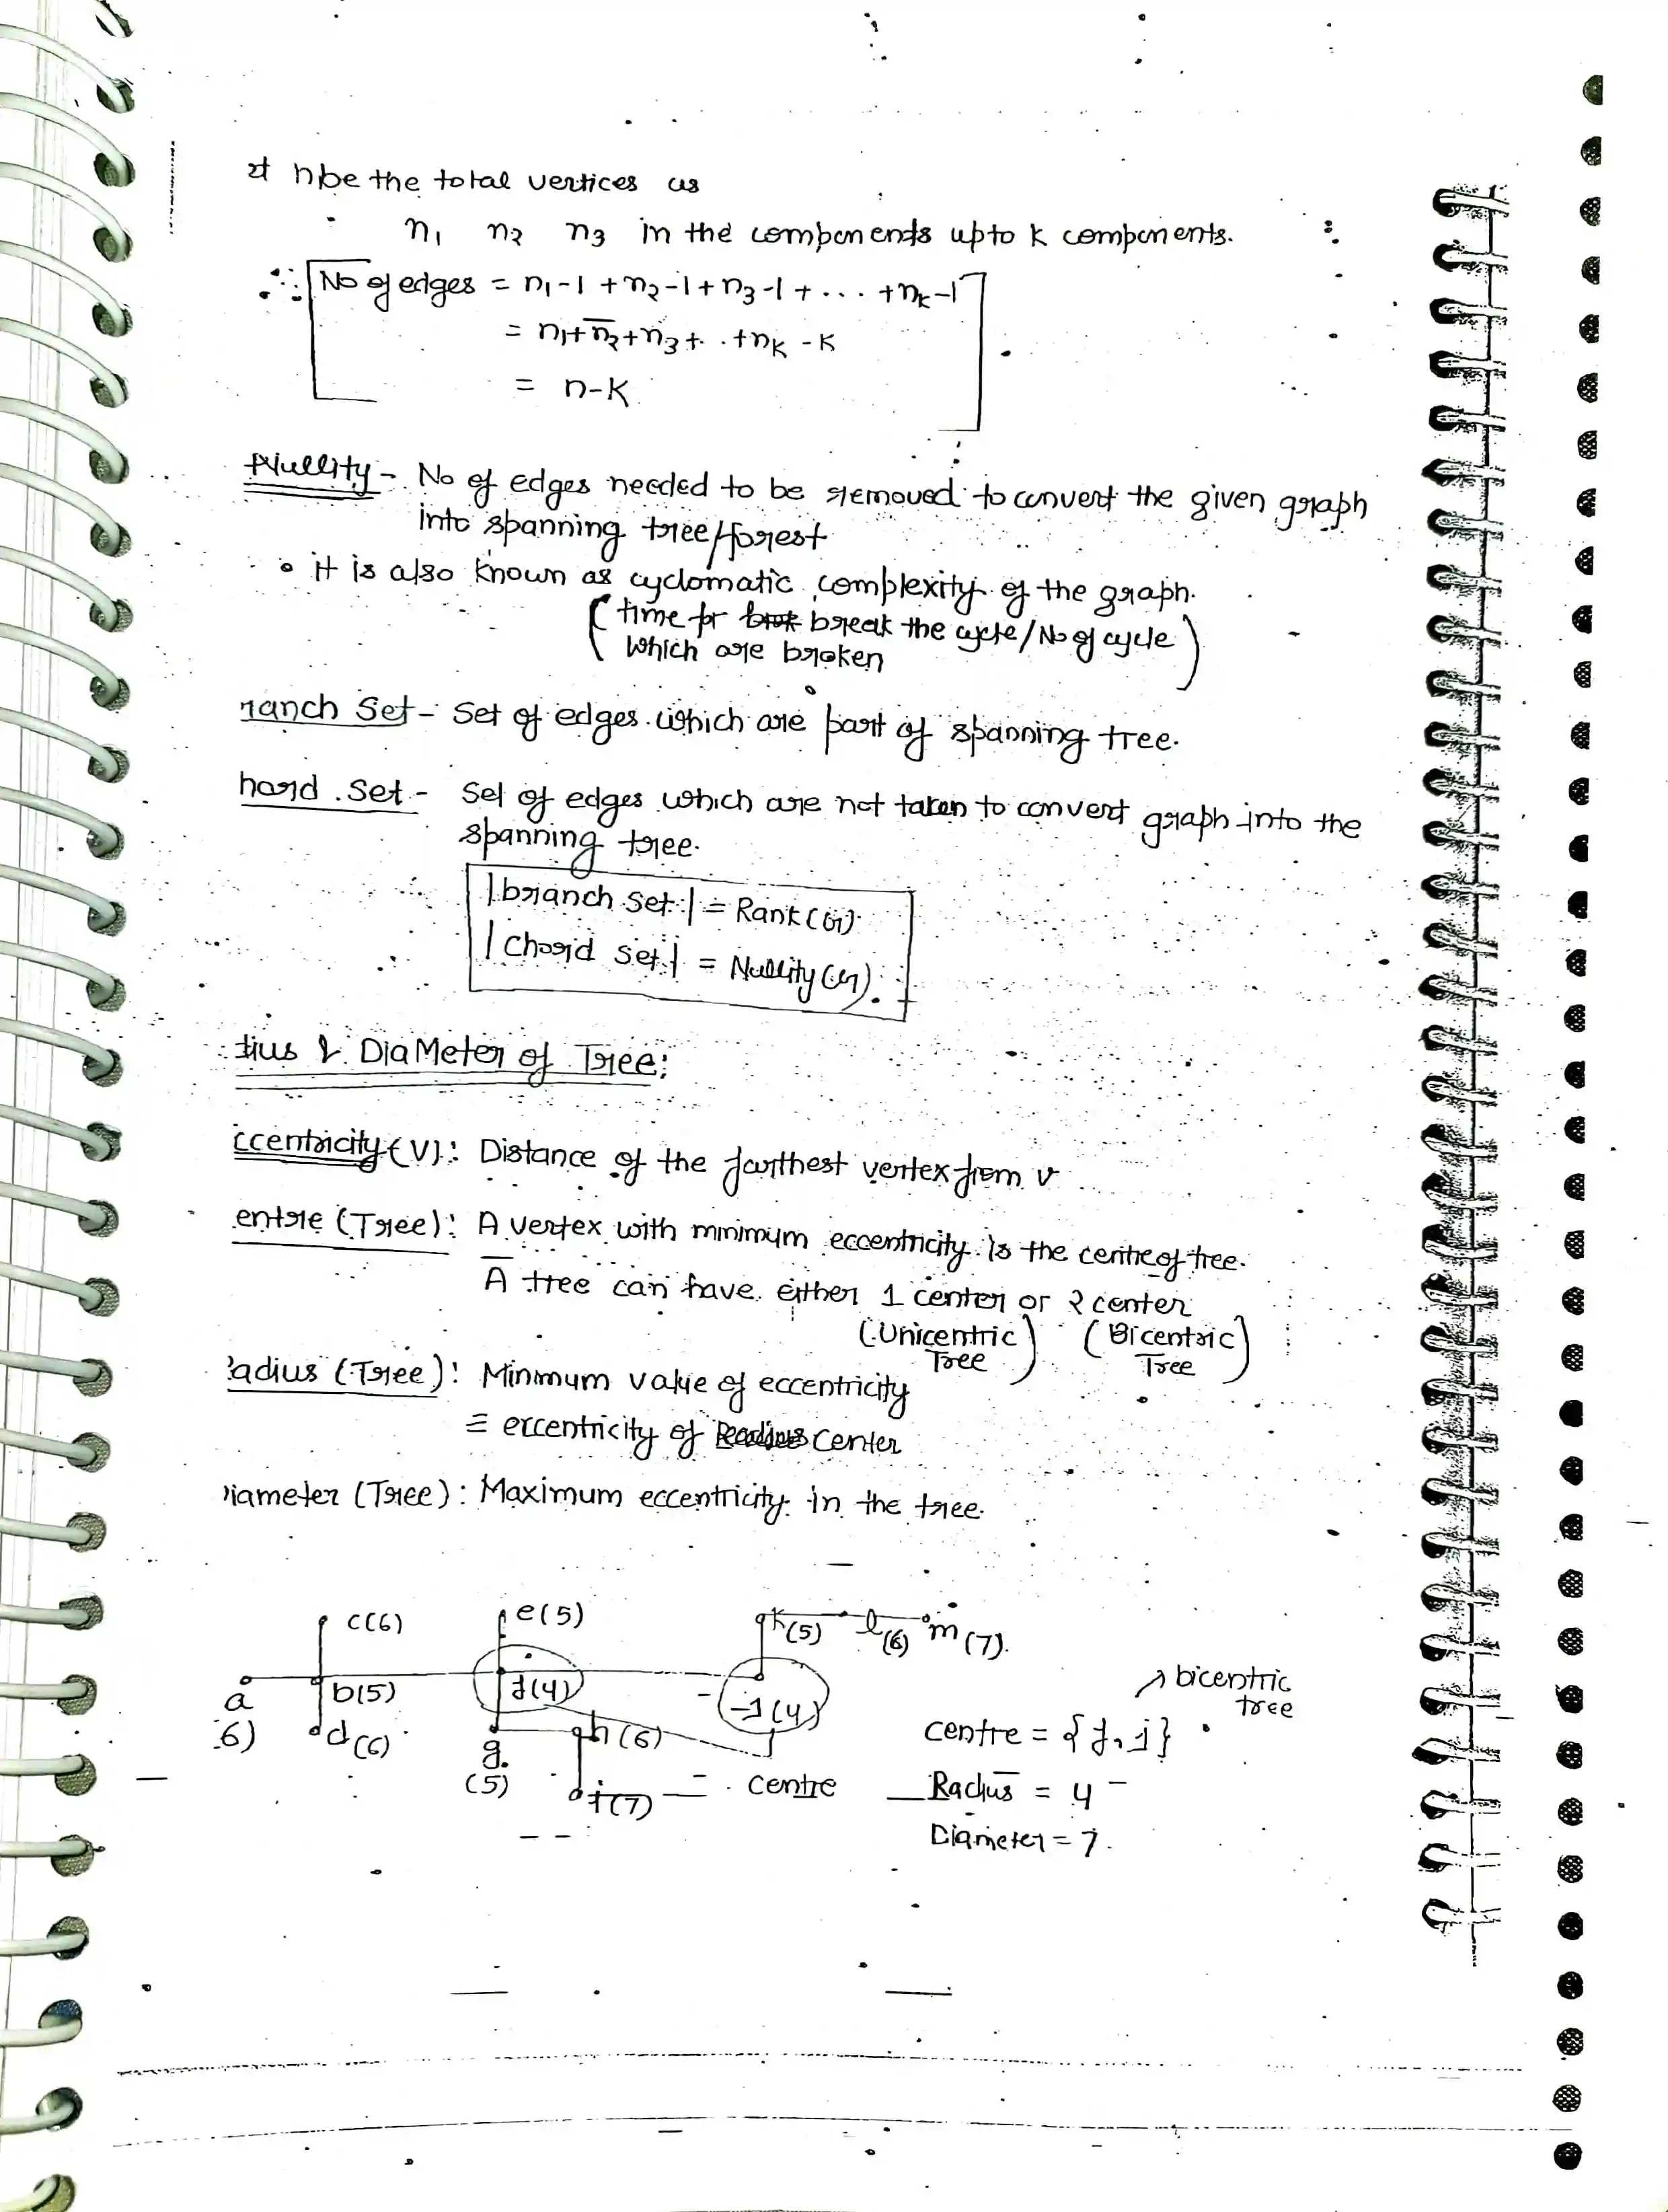 n be the total vertices as
n1 n2 n3 in the components upto k components.
∴ No of edges = n1-1 + n2-1 + n3-1 + ... + nk-1
= n1+n2+n3+ . +nk - K
= n-K
Nullity - No of edges needed to be removed to convert the given graph
into spanning tree/forest
• it is also known as cyclomatic complexity of the graph.
(time for break the cycle/No of cycle
which are broken)
ranch Set - Set of edges which are part of spanning tree.
hord Set - Set of edges which are not taken to convert graph into the
spanning tree.
|branch set| = Rank(G)
|Chord set| = Nullity(G).
dius & DiaMeter of Tree:
ccentricity(V): Distance of the farthest vertex from v
entre (Tree): A vertex with minimum eccentricity is the centre of tree.
A tree can have either 1 center or 2 center
(Unicentric (Bicentric
Tree) Tree)
adius (Tree): Minimum value of eccentricity
≡ eccentricity of center
iameter (Tree): Maximum eccentricity in the tree.
c(6) e(5) k(5) l(6) m(7).
a b(5) f(4) j(4)
6) d(6) g. h(6)
(5) i(7) centre
bicentric
tree
centre = {f, j}
Radius = 4
Diameter = 7.